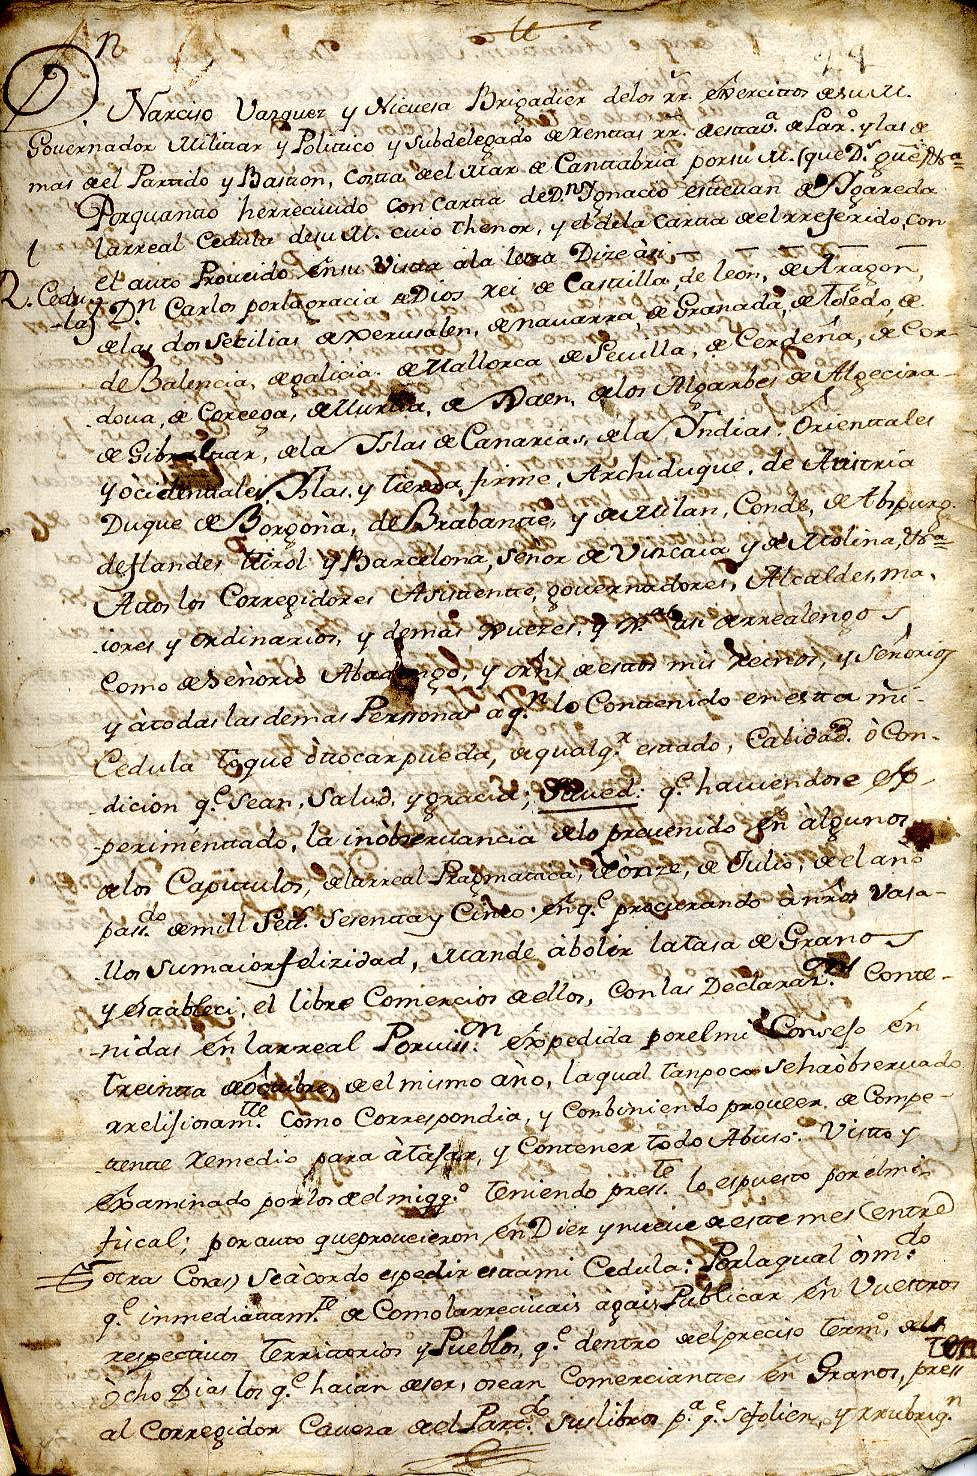 n
D.
Narciso Vazquez y Nicuesa Brigadier delos rr. exercitos de su M.
Governador Militar y Politico y Subdelegado de Renttas rr. de estta v.ª de Lar.º y las de
mas de el Partido y Baston, Costa de el Mar de Canttabria por su M. (que D.s gue) &ª
Porquantto he rrecivido con cartta de D.n Ygnacio estevan de Ygareda
la rreal Cedula de su M. cuio thenor, y el de la Cartta de el rreferido, con
el auto Proveido en su Vistta a la letra Dize asi
R. Cedu
la
D.n Carlos por la gracia de Dios rei de Casttilla, de leon, de Aragon,
de las dos Secilias de Jerusalen, de navarra, de Granada, de Toledo, de
de Balencia, de galicia, de Mallorca de Sevilla, de Cerdeña, de Cor-
dova, de Corcega, de Murcia, de Jaen, de los Algarbes de Algecira
de Gibraltar, de la Yslas de Canarias, de la Yndias, Orienttales
y òcidentales, Yslas, y tierra firme, Archiduque, de Austria
Duque de Borgoña, de Brabantte, y de Milan, Conde, de Abspurg
de flandes ttirol y Barcelona, señor de Vizcaia y de Molina, &ª
A ttos los Corregidores Asistentte, governadores, Alcaldes, ma
iores y ordinarios, y demas Jueces, y asi de rrealengo
Como de señorio Abadengo, y ordns de estos mis reinos, y señorios
y à todas las demas Personas a q.n lo Contenido en estta mi
Cedula toque ò ttocar pueda, de qualq.r estado, Calidad ò Con-
dicion q.e sean, Salud, y gracia; Saved: q.e haviendose esp
perimentado, la inòbservancia de lo prevenido en àlgunos
de los Capitulos, de la rreal Pragmatica, de ònze, de Julio, de el año
pass.do de mill Sett.s Sesentta y Cinco en q.e procurando à nros Vasa-
llos su maior felizidad, Mande àbolir la tasa de Granos
y estableci, el libre Comercios de ellos, con las Declaraz.nes Conte-
nidas en la rreal Porviss.on expedida por el mi Consejo en
treintta de octubre, de el mismo año, la qual tanpoco se ha òbservado
rrelisiosam.tte Como correspondia, y conbiniendo proveer de Compe-
ttente remedio para àtajar, y Contener todo Abuso: Vistto y
examinado por los de el mi q.º teniendo press.te lo espuesto por el mi
fiscal; por auto que proveieron en Diez y nueve de este mes (entre
otras Cosas) se àcordo espedir esta mi Cedula: Por la qual òs m.do
q.e inmediattam.te de Como la rrecivais àgais Publicar en Vuestros
respectivos Territtorios y Pueblos, q.e dentro de el preciso term.º de
òcho Dias los q.e haian de ser, o sean Comerciantes en Granos, press.ten
al Corregidor Caveza de el Part.do sus libros p.a q.e se folien, y rrubriq.n